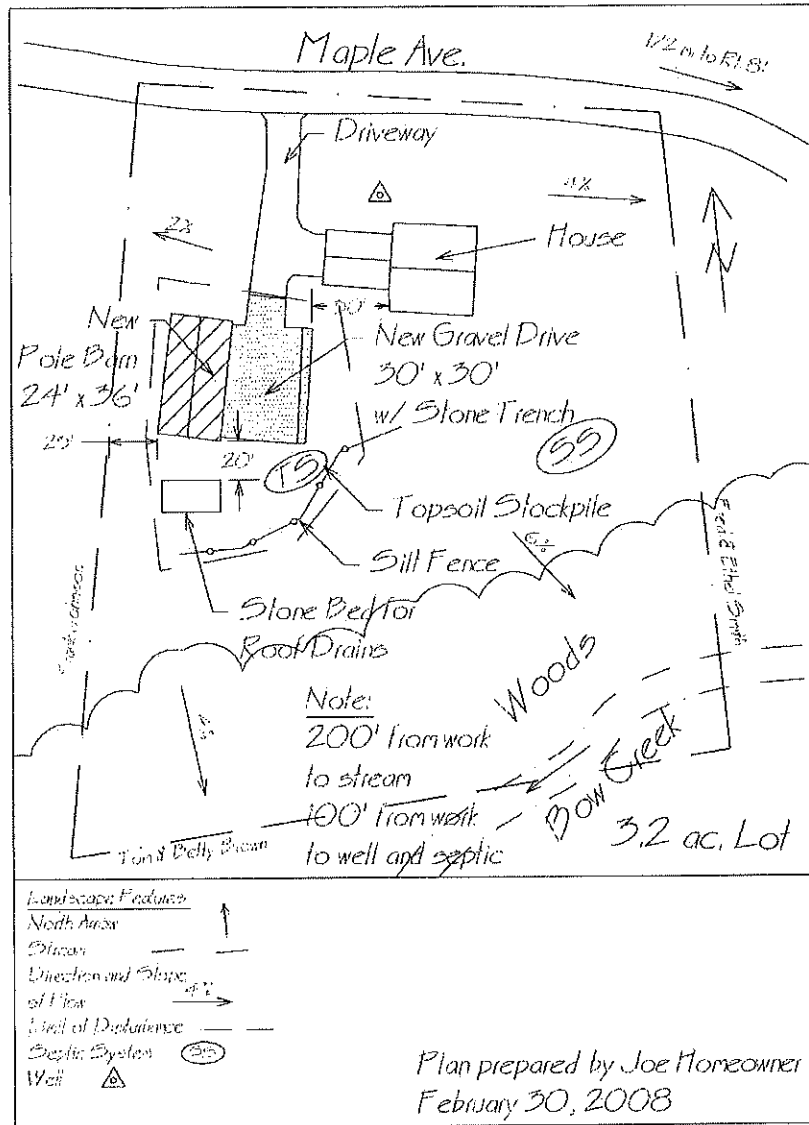 Maple Ave.
1/2 m. to Rt. 8!
Driveway
4%
2%
House
30'
New
Pole Barn
24' x 36'
New Gravel Drive
30' x 30'
w/ Stone Trench
20'
TS
SS
Topsoil Stockpile
Silt Fence
Stone Bed for
Roof Drains
Fred & Ethel Smith
Woods
Note:
200' from work
to stream
100' from work
to well and septic
Bow Creek
3.2 ac. Lot
Tom & Betty Brown
Landscape Features
North Arrow
Stream
Direction and Slope
of Flow
4%
Limit of Disturbance
Septic System
SS
Well
Plan prepared by Joe Homeowner
February 30, 2008